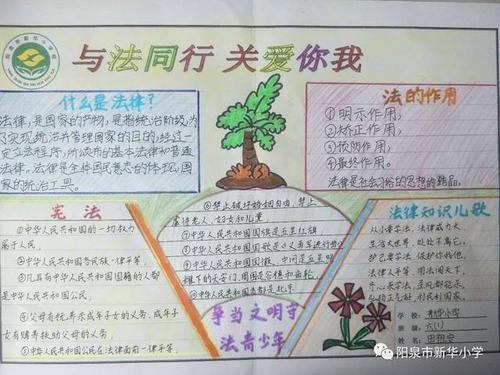 与法同行 关爱你我
什么是法律?
法律,是国家的产物,是指统治阶级为
了实现统治并管理国家的目的,经过一
定立法程序,所颁布的基本法律和普通
法律。法律是全体国民意志的体现,国
家的统治工具。
法的作用
①明示作用,
②矫正作用,
③预防作用,
④最终作用。
法律是社会习俗的思想的结晶。
宪法
①中华人民共和国的一切权力
属于人民。
②中华人民共和国各民族一律平等。
③凡具有中华人民共和国国籍的人都
是中华人民共和国公民。
④父母有抚养未成年子女的义务,成年子
女有赡养扶助父母的义务。
⑤中华人民共和国公民在法律面前一律平等。
⑥禁止破坏婚姻自由,禁止
虐待老人、妇女和儿童。
⑦中华人民共和国国旗是五星红旗。
⑧中华人民共和国国歌是《义勇军进行曲》
⑨中华人民共和国国徽,中间是五星照
耀下的天安门,周围是谷穗和齿轮。
⑩中华人民共和国首都是北京
争当文明守
法青少年
法律知识儿歌
从小学法,法律威力大,
生活大世界,处处不离它。
学校:新华小学
班级:六(1)
姓名:
阳泉市新华小学